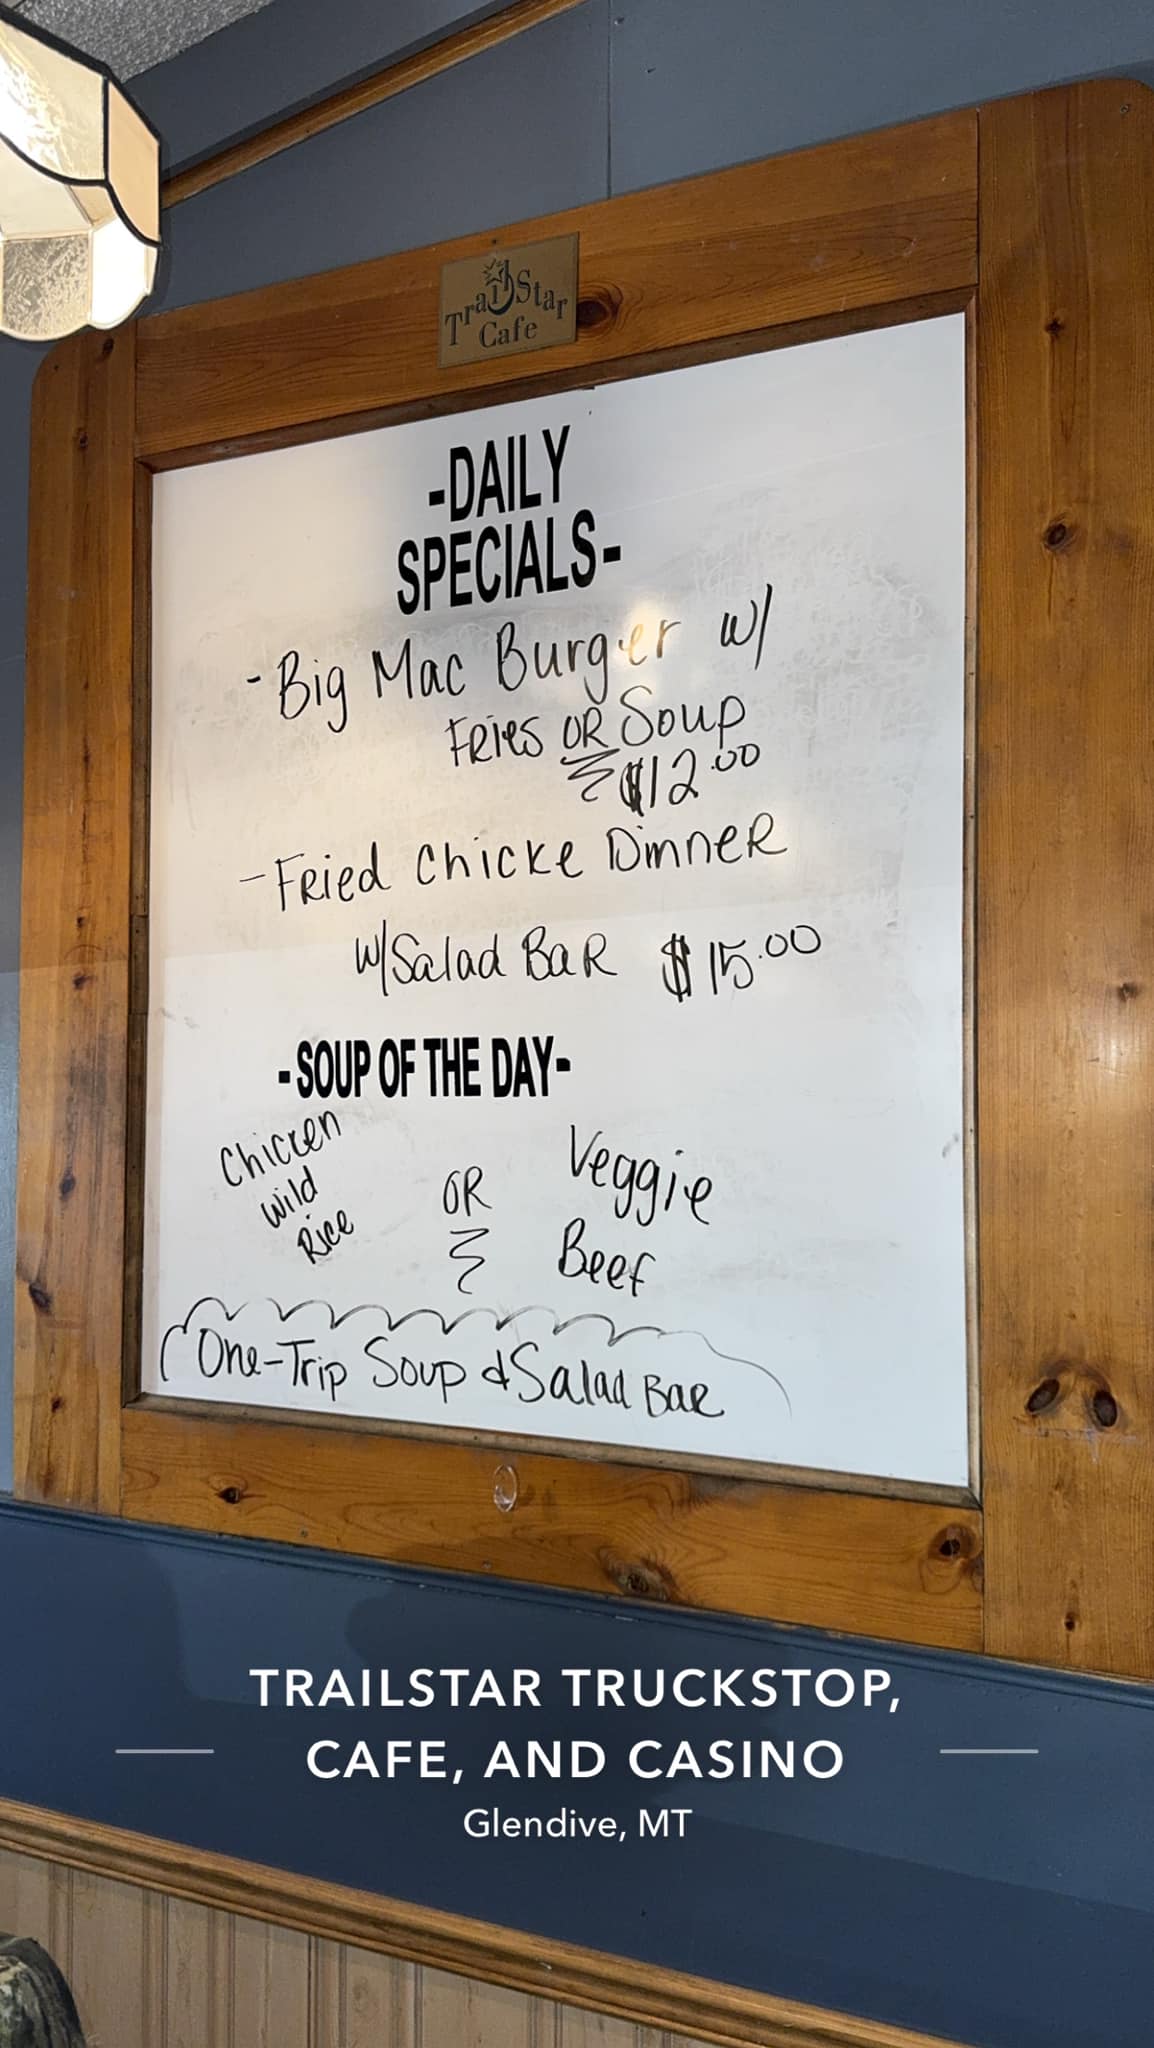 TrailStar
Cafe
-DAILY
SPECIALS-
- Big Mac Burger w/
FRIES OR Soup
$12.00
- FRied Chicke DinneR
w/Salad BaR $15.00
-SOUP OF THE DAY-
Chicken
Wild
Rice
OR
Veggie
Beef
One-Trip Soup & Salad Bar
TRAILSTAR TRUCKSTOP,
CAFE, AND CASINO
Glendive, MT